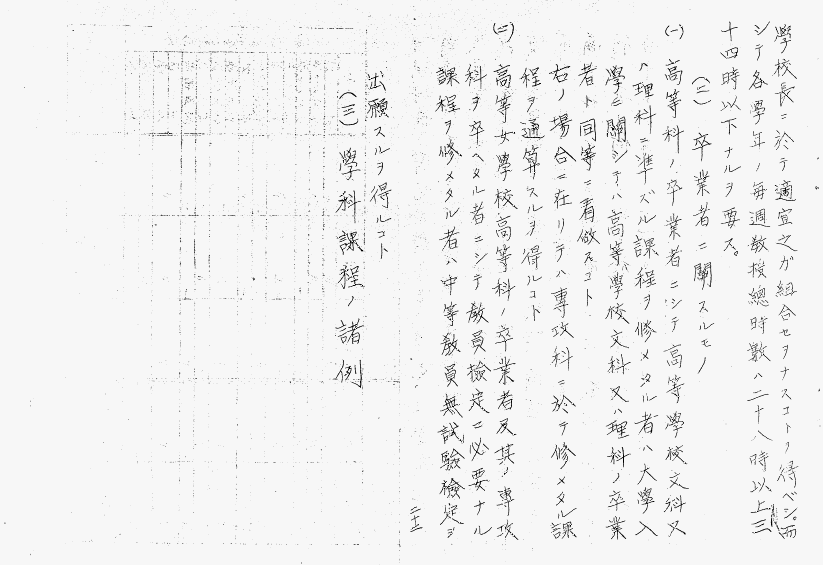 學校長ニ於テ適宜之ガ組合セヲナスコトヲ得ベシ。而
シテ各學年ノ每週敎授總時數ハ二十八時以上三
十四時以下ナルヲ要ス。
(二) 卒業者ニ關スルモノ
(一) 高等科ノ卒業者ニシテ高等學校文科又
ハ理科ニ準ズル課程ヲ修メタル者ハ大學入
學ニ關シテハ高等學校文科又ハ理科ノ卒業
者ト同等ニ看做スコト
右ノ場合ニ在リテハ專攻科ニ於テ修メタル課
程ヲ通算スルヲ得ルコト
(二) 高等女學校高等科ノ卒業者及其ノ專攻
科ヲ卒ヘタル者ニシテ敎員檢定ニ必要ナル
課程ヲ修メタル者ハ中等敎員無試驗檢定ヲ
二十一
出願スルヲ得ルコト
(三) 學科課程ノ諸例